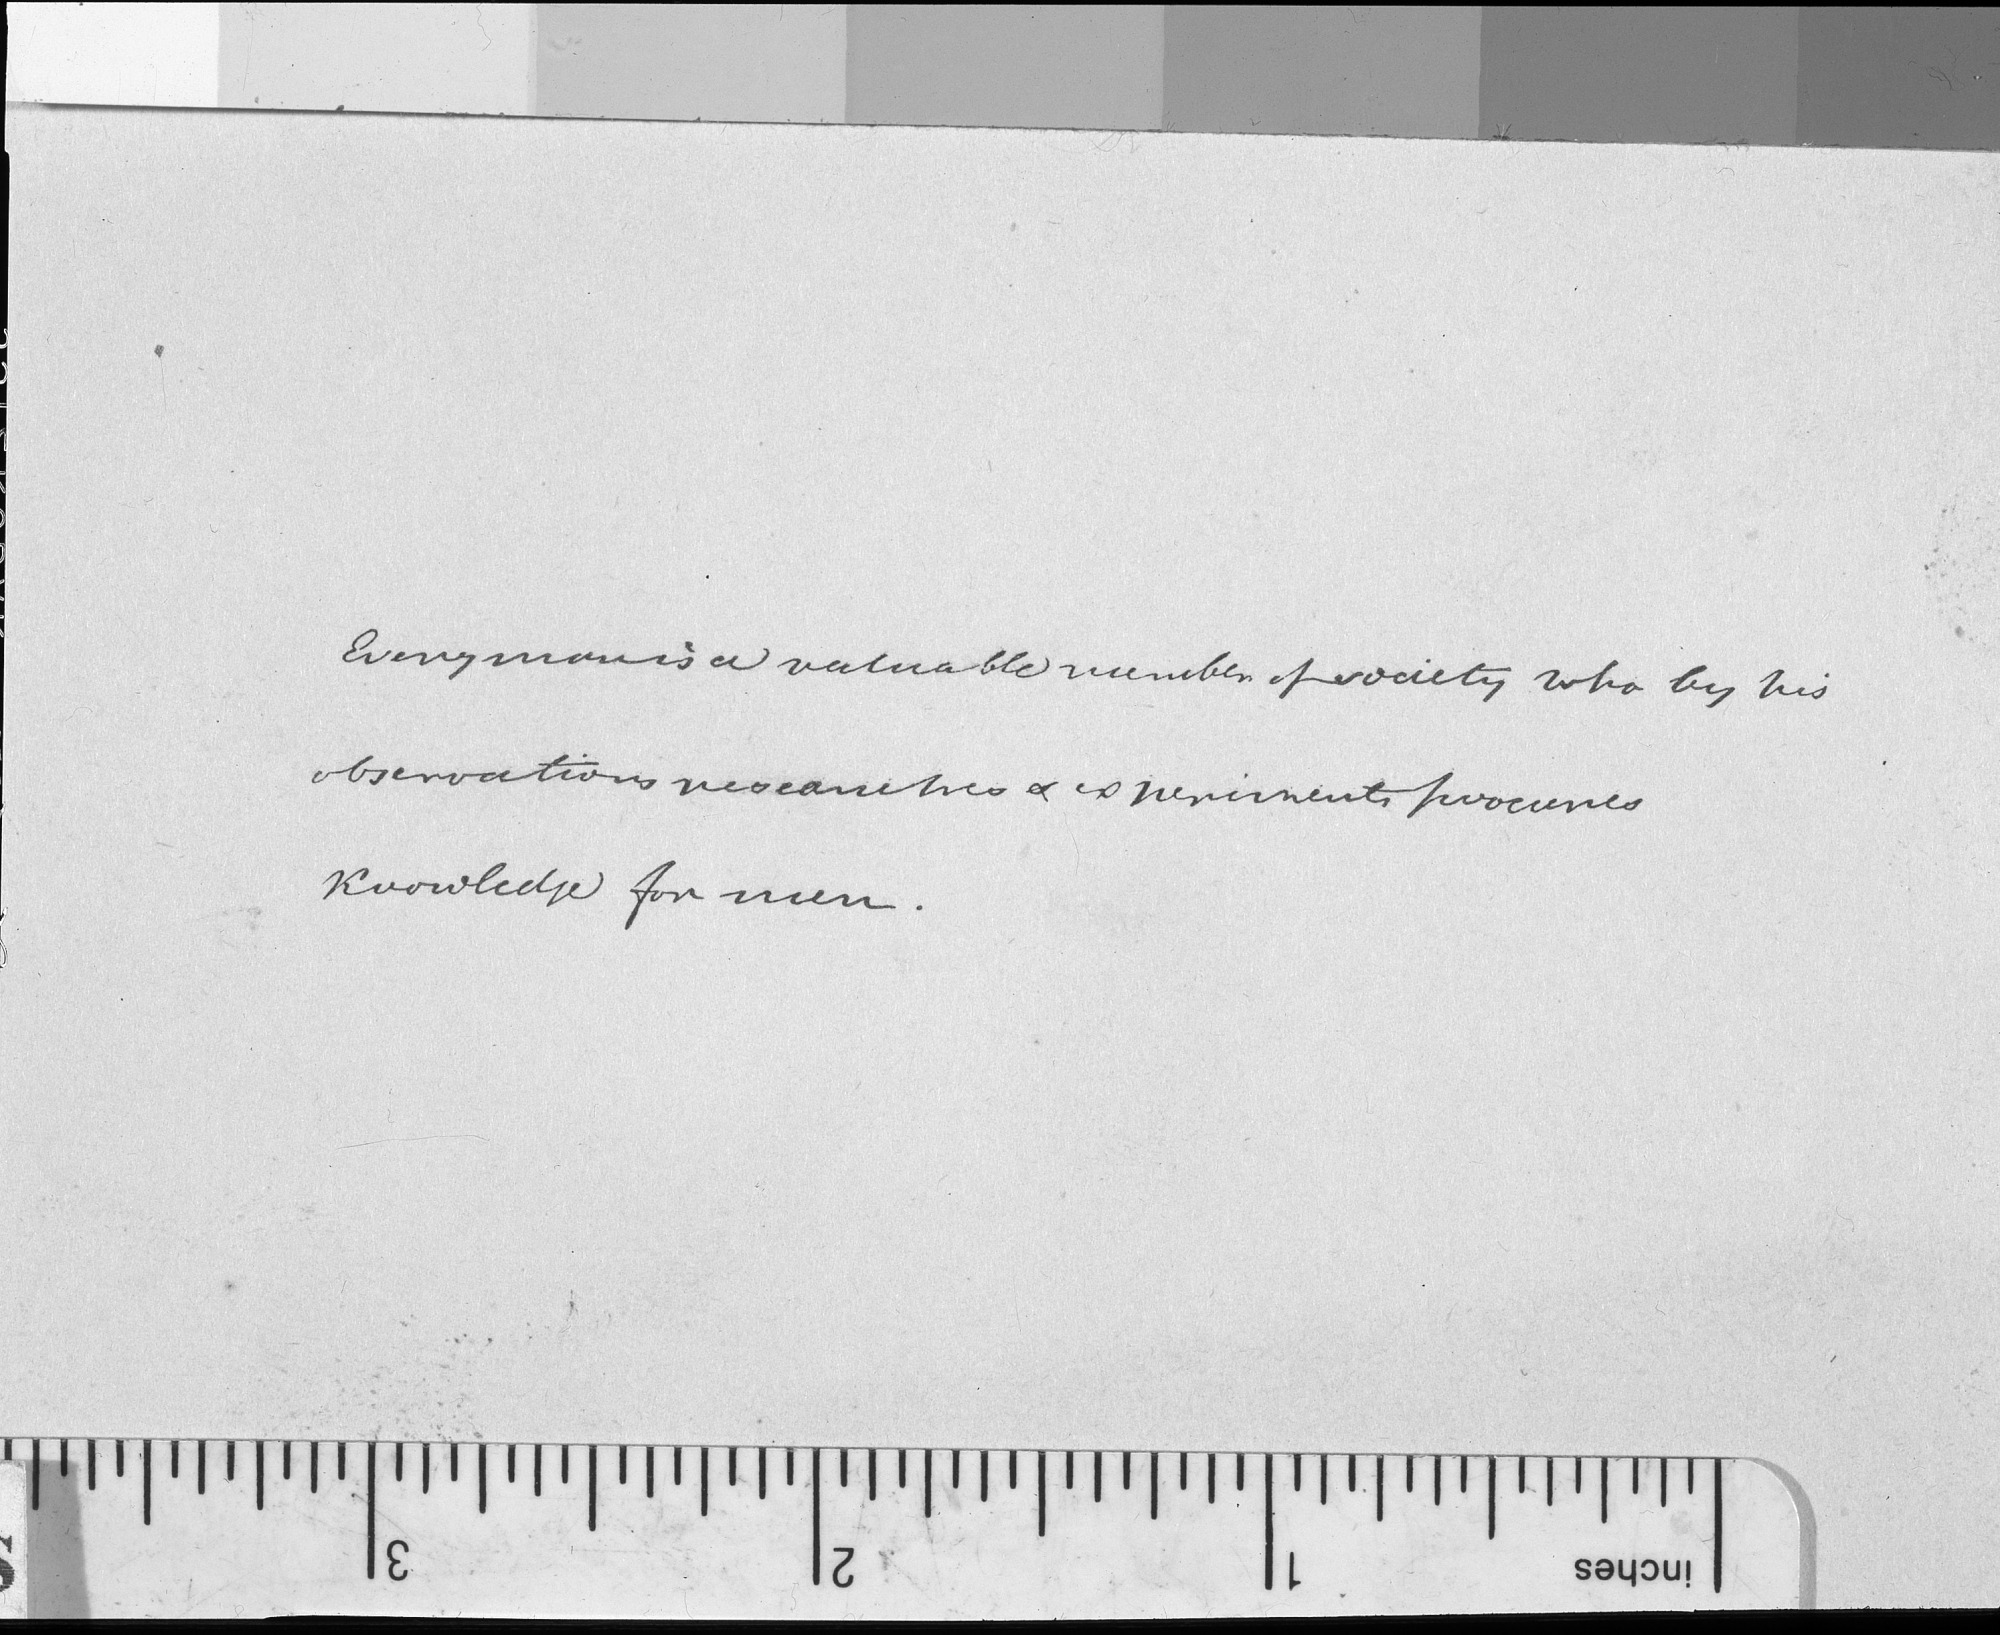 Every man is a valuable member of society who by his
observations researches & experiments procures
Knowledge for men.
3 2 1 inches